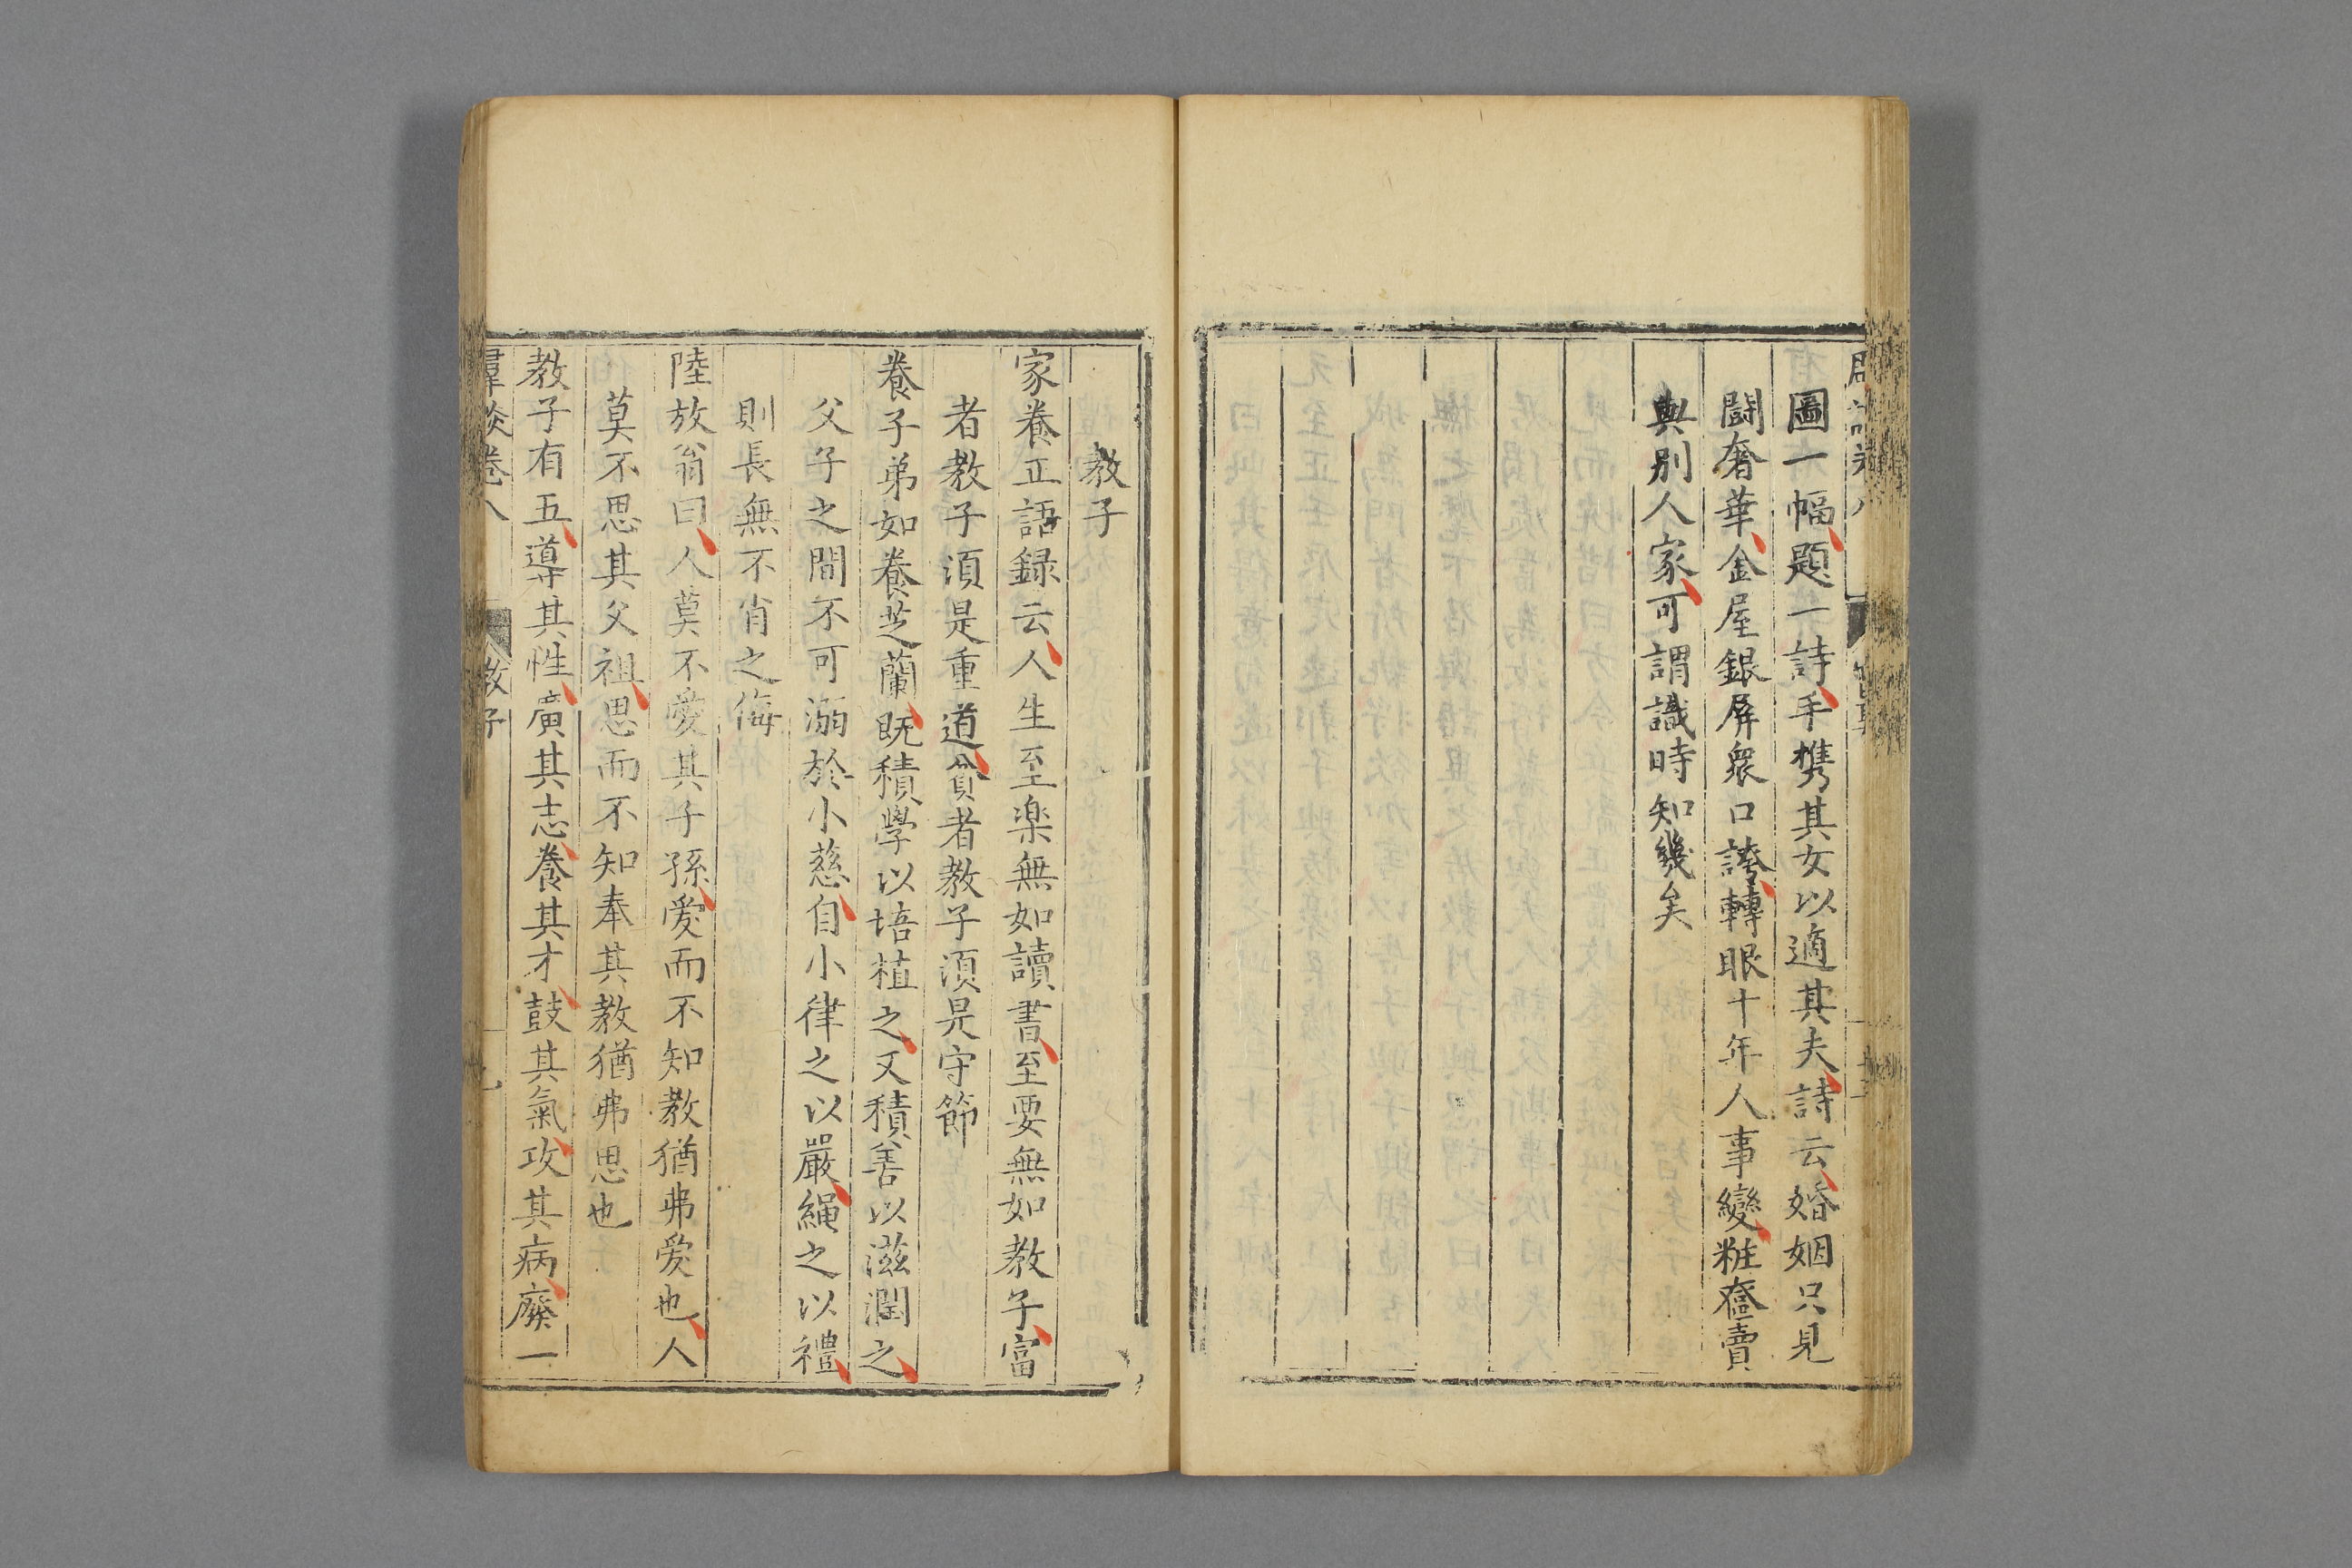 圖一幅題一詩手携其女以適其夫詩云婚姻只見
鬪奢華金屋銀屏衆口誇轉眼十年人事變粧奩賣
與別人家可謂識時知幾矣
教子
家養正語録云人生至楽無如讀書至要無如教子富
者教子須是重道貧者教子須是守節
養子弟如養芝蘭既積學以培植之又積善以滋潤之
父子之間不可溺於小慈自小律之以嚴繩之以禮
則長無不肖之侮
陸放翁曰人莫不愛其子孫愛而不知教猶弗爱也人
莫不思其父祖思而不知奉其教猶弗思也
教子有五導其性廣其志養其才鼓其氣攻其病廢一
羣談卷八 教子